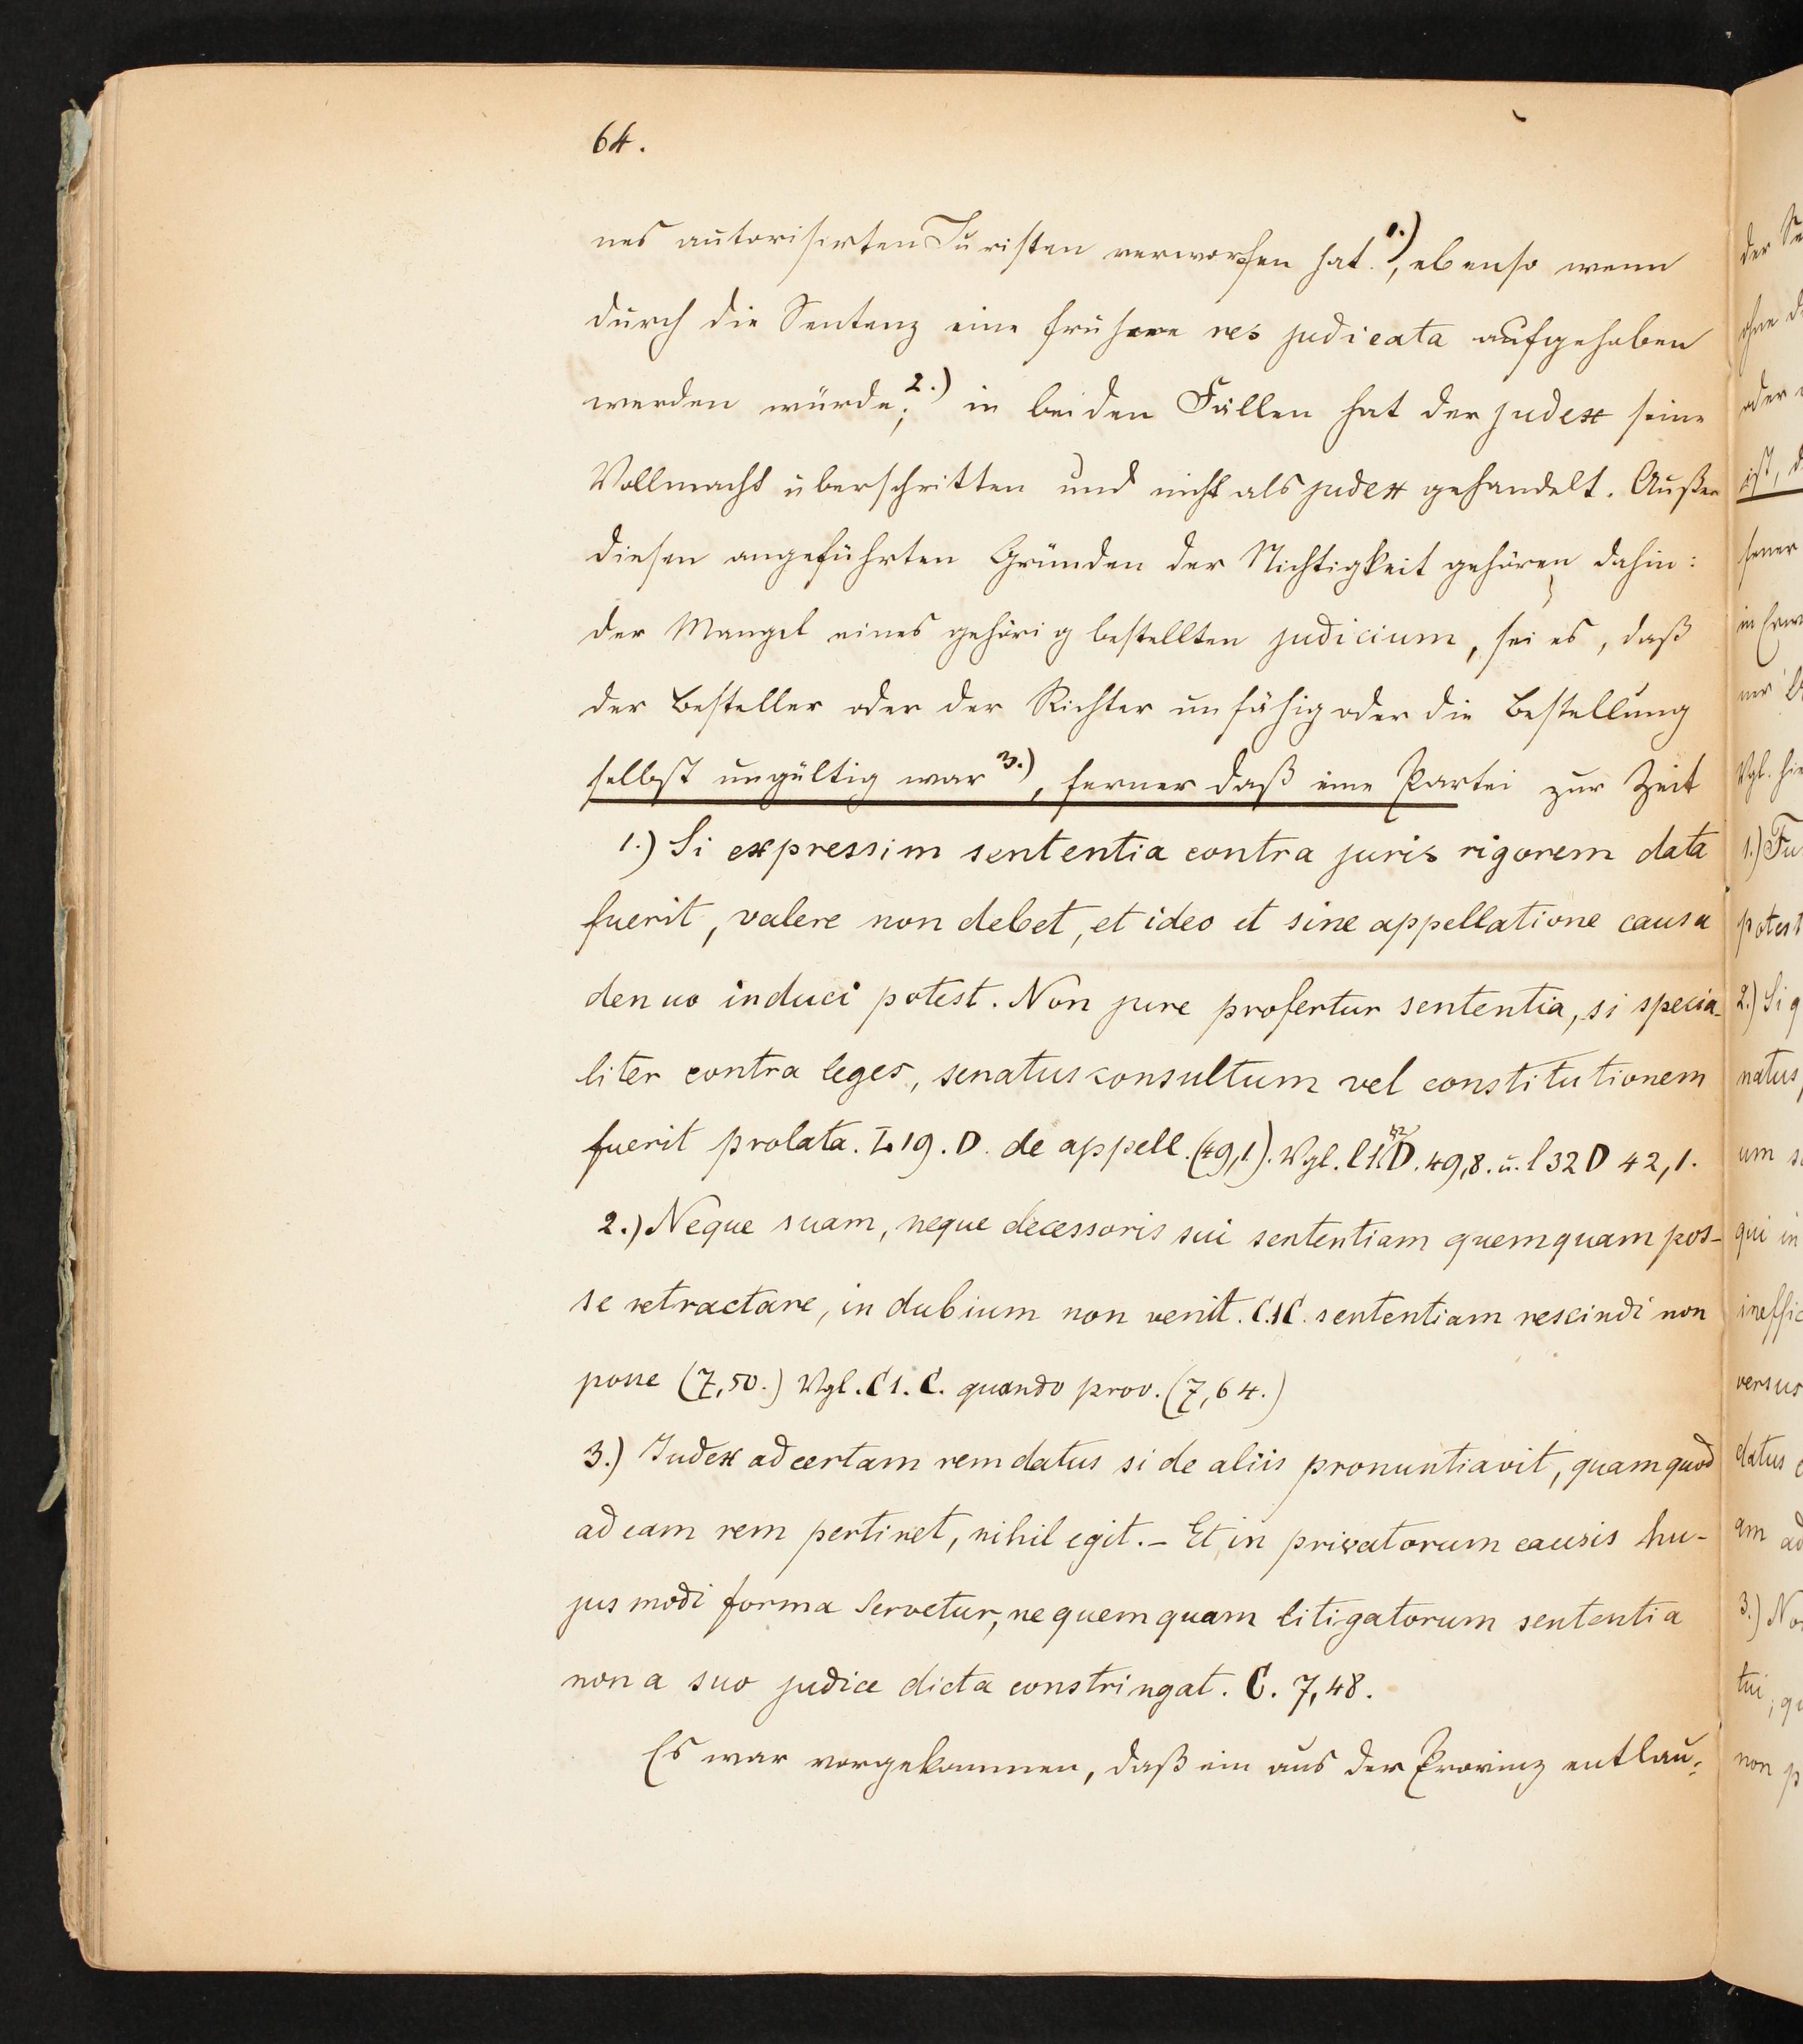 64.
nes autorisirten Juristen verworfen hat.1.), ebenso wenn
durch die Sentenz eine frühere res judicata aufgehoben
werden würde;2.) in beiden Fällen hat der judex seine
Vollmacht überschritten und nicht als judex gehandelt. Außer
diesen angeführten Gründen der Nichtigkeit gehören dahin:
der Mangel eines gehörig bestellten judicium, sei es, daß
der Besteller oder der Richter unfähig oder die Bestellung
selbst ungültig war3.), ferner daß eine Partei zur Zeit
1.) Si expressim sententia contra juris rigorem data
fuerit, valere non debet, et ideo et sine appellatione causa
denuo induci potest. Non jure profertur sententia, si specia-
liter contra leges, senatusconsultum vel constitutionem
fuerit prolata. L 19. D. de appell. (49,1). Vgl. l 1. §2 D. 49,8. u. l 32 D 42,1.
2.) Neque suam, neque decessoris sui sententiam quemquam pos-
se retractare, in dubium non venit. C.1C. sententiam rescindi non
posse (7,50.) Vgl. C1. C. quando prov. (7,64.)
3.) Judex ad certam rem datus si de aliis pronuntiavit, quam quod
ad eam rem pertinet, nihil egit. – Et in privatorum causis hu-
jusmodi forma servetur, ne quemquam litigatorum sententia
non a suo judice dicta constringat. C. 7,48.
Es war vorgekommen, daß ein aus der Provinz entlau-
der
ohne
oder
ist,
in
Vgl.
1.)
potest
2.) Si q
natus,
um
qui in
ineffic
versus
datus
am ad
3.) No
tui, qu
non p